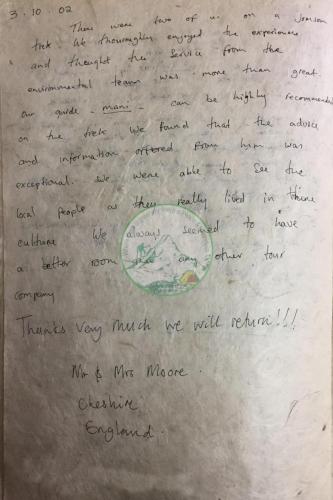 3.10.02
There were two of us on a Jomsom
trek. We thoroughly enjoyed the experience
and thought the service from the
environmental team was more than great.
our guide - mani - can be highly recommended
on the trek we found that the advice
and information offered from him was
exceptional. We were able to see the
local people as they really lived in there
culture We always seemed to have
a better room than any other tour
company
Thanks very much we will return!!!
Mr & Mrs Moore.
Cheshire
England.